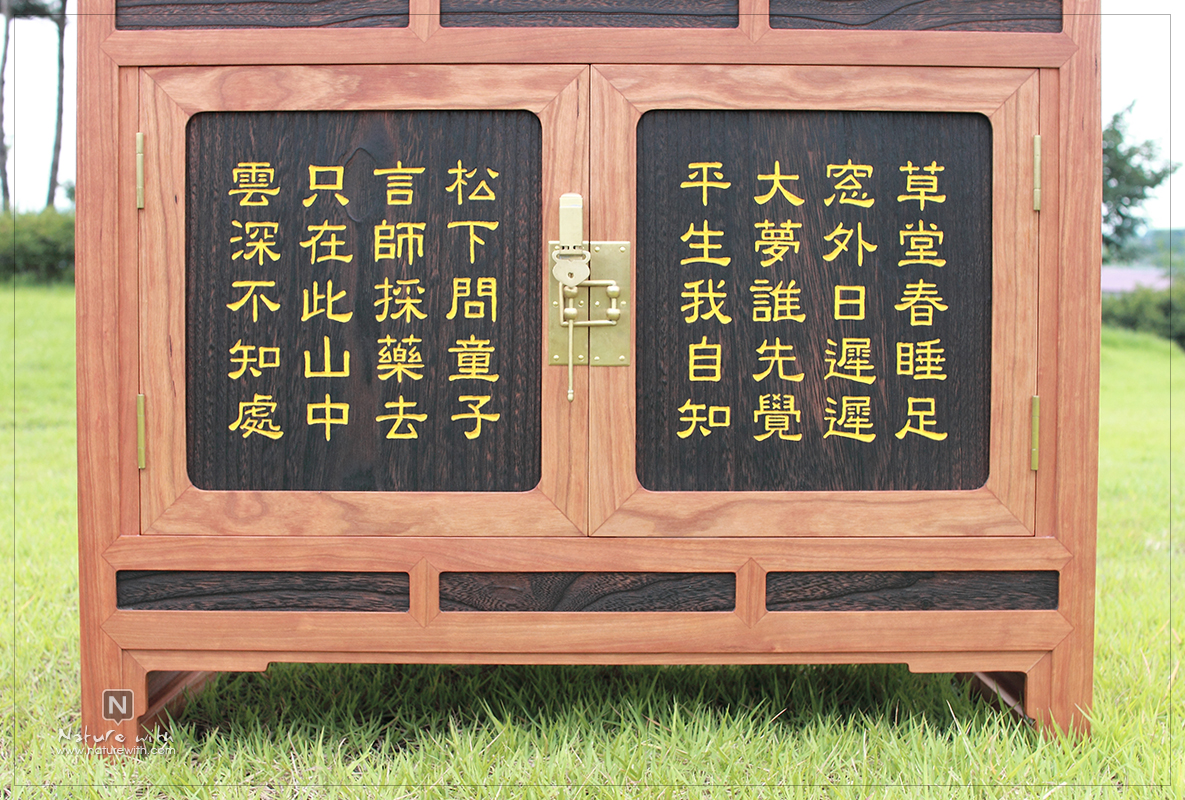 草堂春睡足
窓外日遲遲
大夢誰先覺
平生我自知
松下問童子
言師採藥去
只在此山中
雲深不知處
N
Nature with
www.naturewith.com